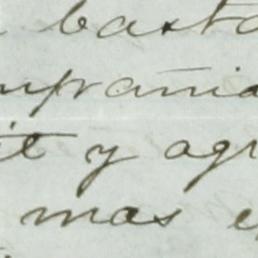 basta
mpañia
it y agr
mas e